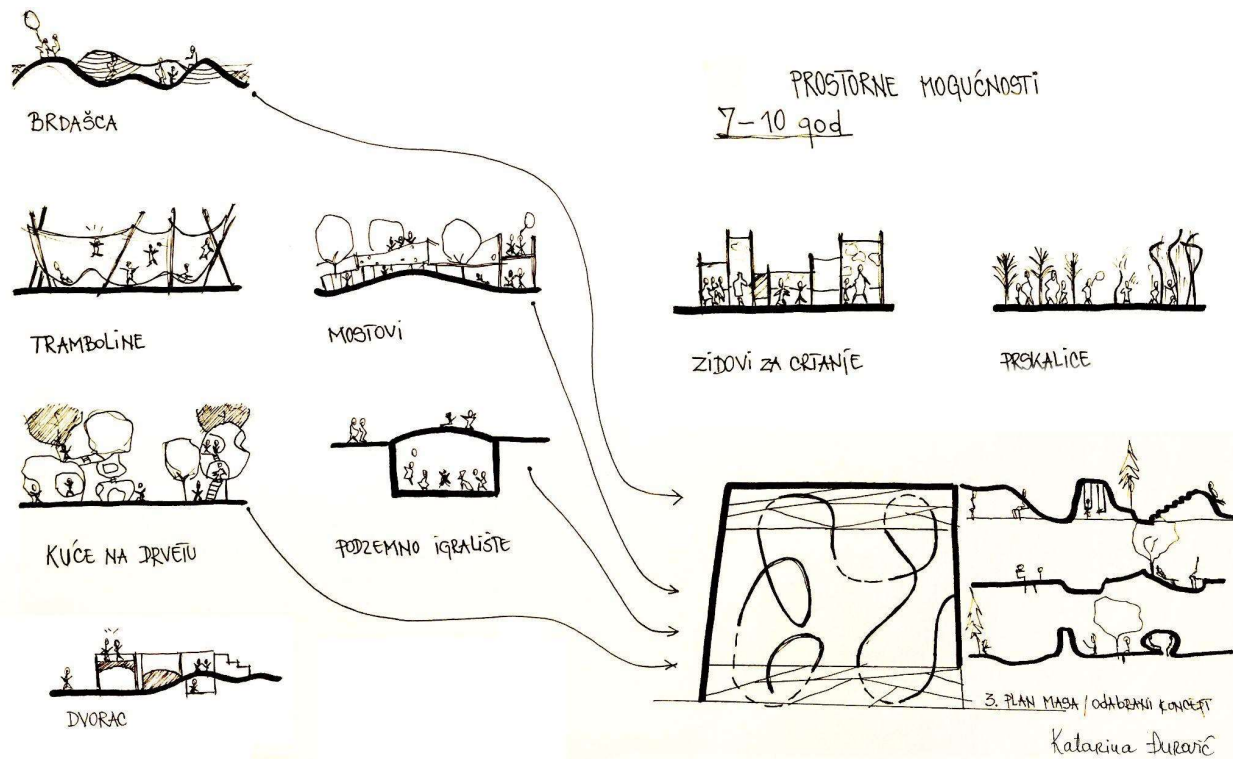 PROSTORNE MOGUĆNOSTI
7-10 god
BRDAŠCA
TRAMBOLINE
MOSTOVI
ZIDOVI ZA CRTANJE
PRSKALICE
KUĆE NA DRVETU
PODZEMNO IGRALIŠTE
DVORAC
3. PLAN MASA / ODABRANI KONCEPT
Katarina Đurović